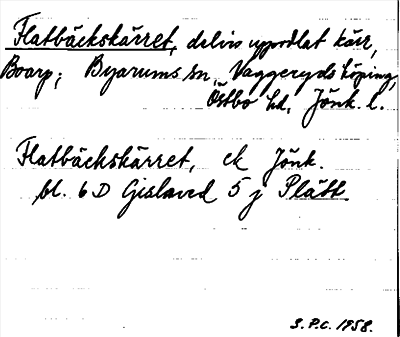 Flatbäckskärret, delvis uppodlat kärr,
Boarp; Byarums sn Vaggeryds köping,
Östbo hd. Jönk. l.
Flatbäckskärret, ek Jönk.
bl. 6 D Gislaved 5 j Plätt
S.P.C. 1958.